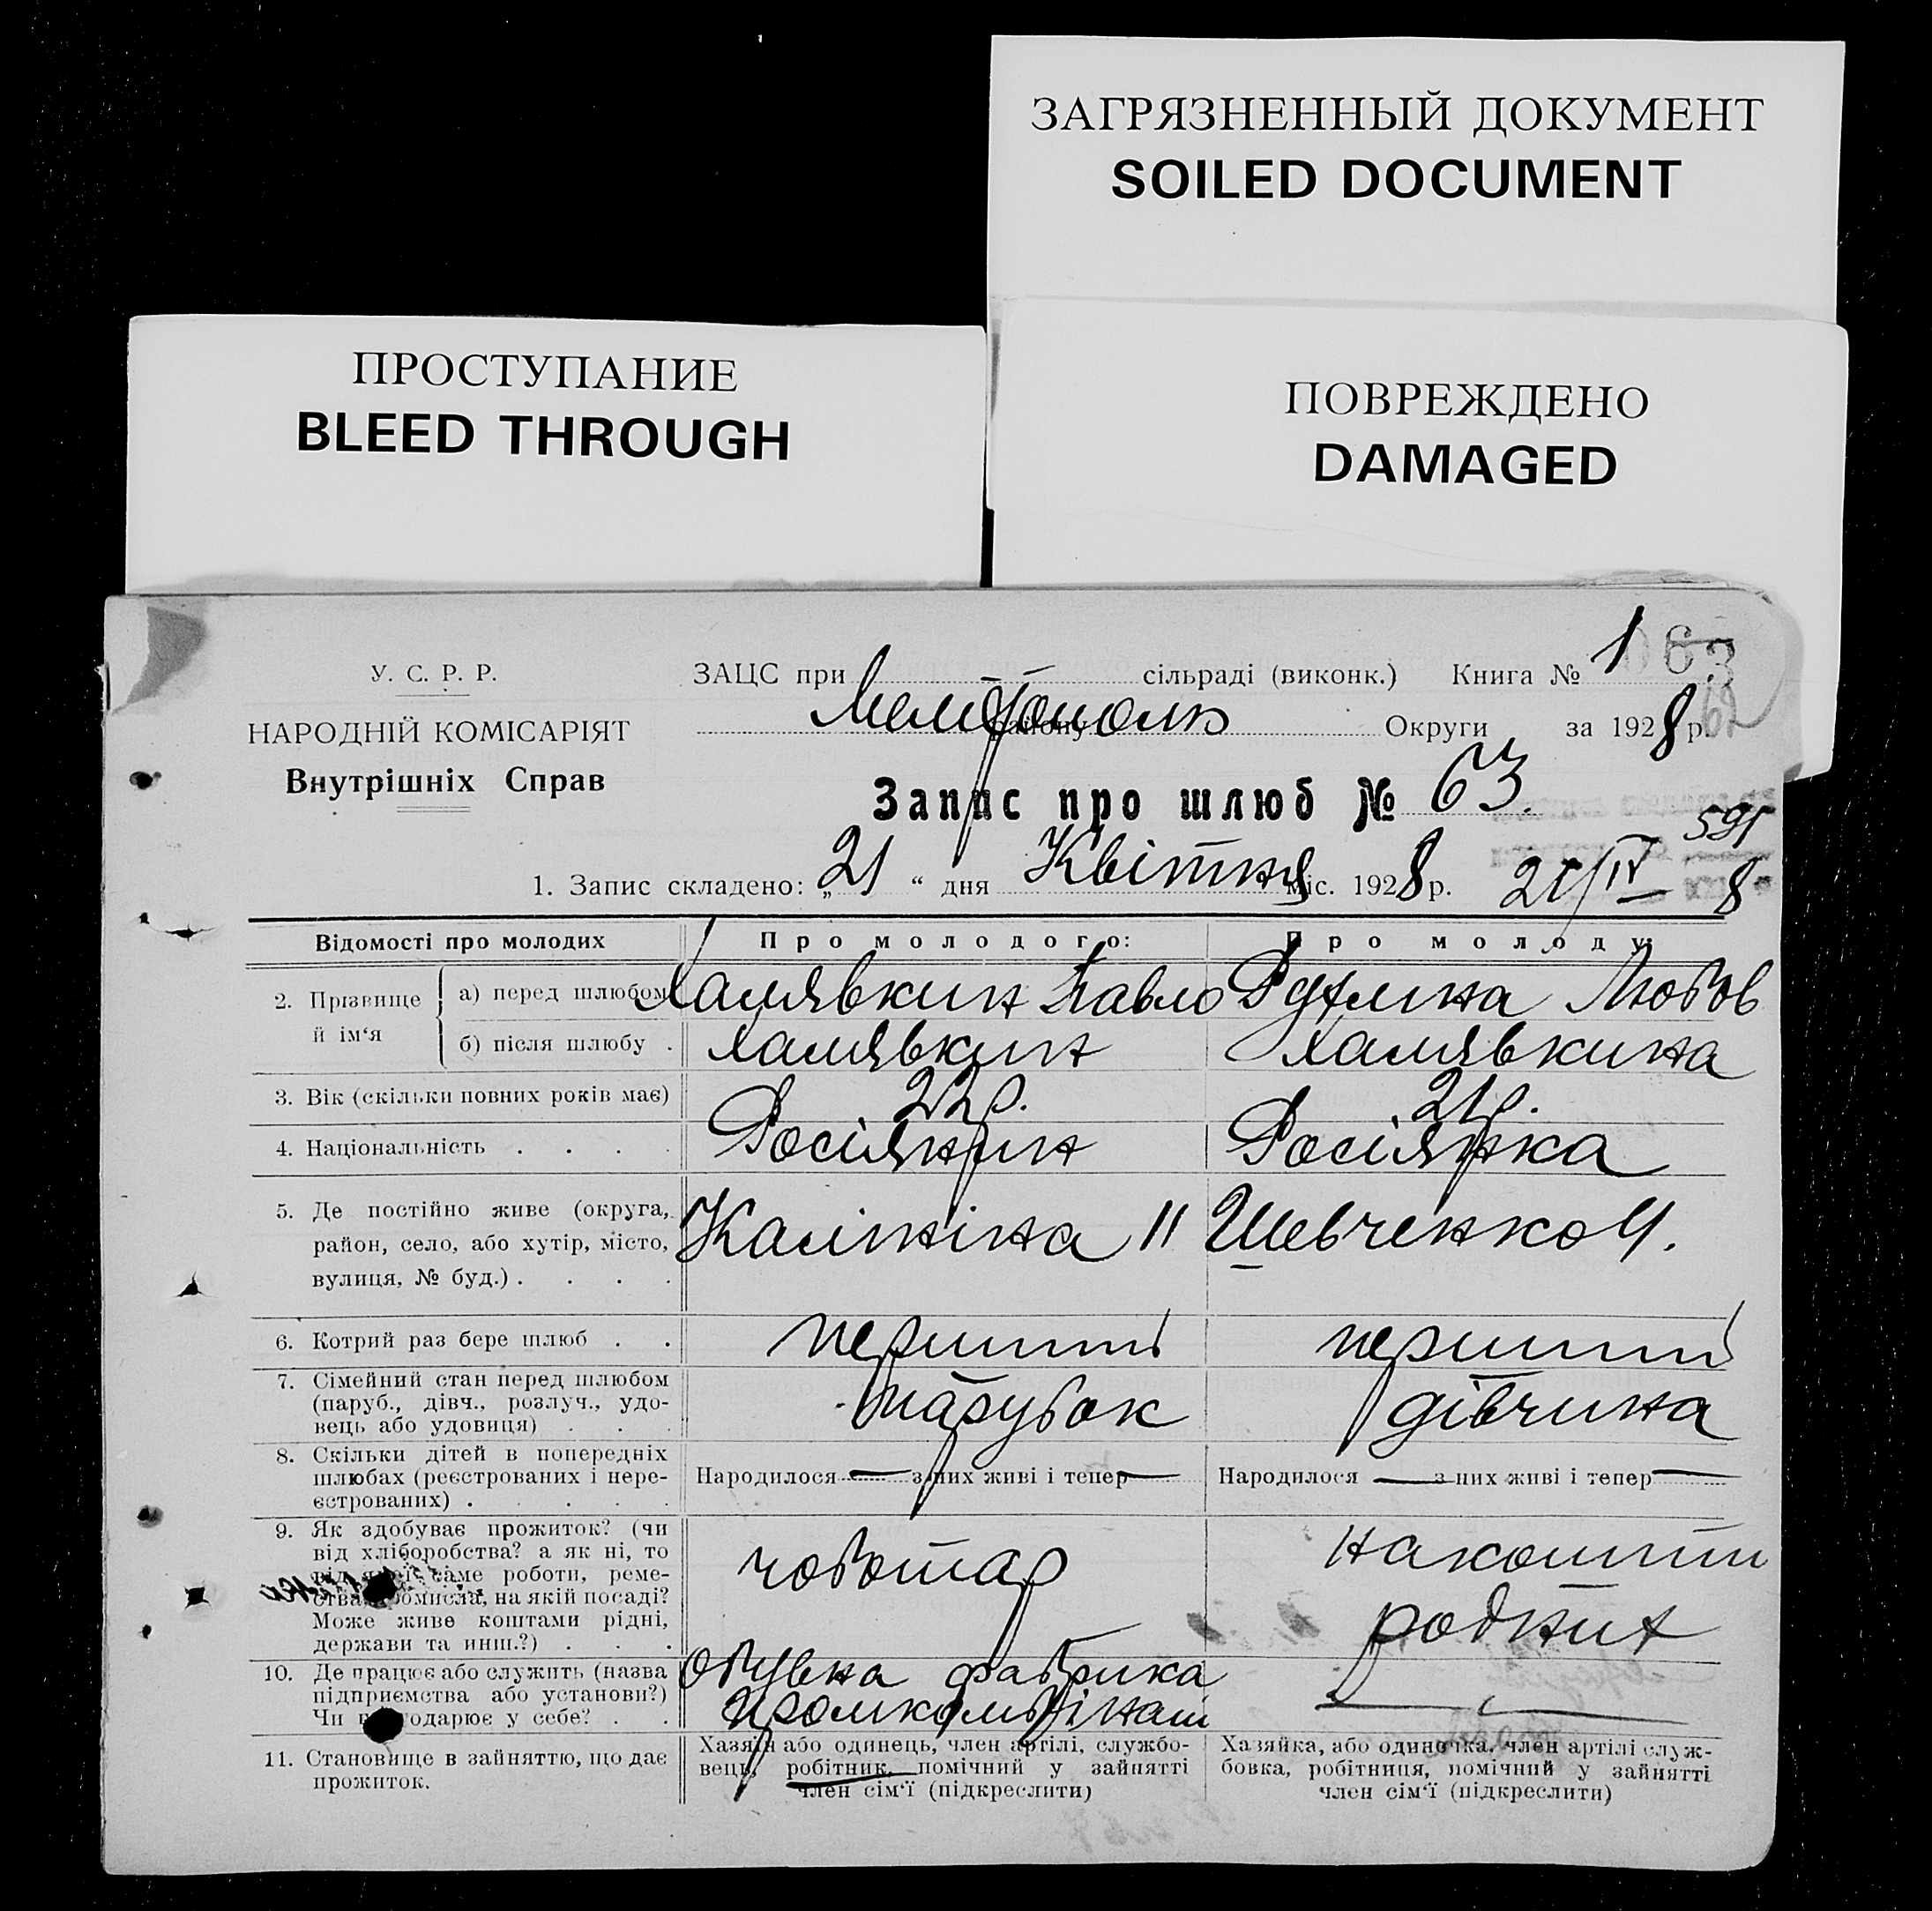 ЗАГРЯЗНЕННЫЙ ДОКУМЕНТ
SOILED DOCUMENT
ПРОСТУПАНИЕ
BLEED THROUGH
ПОВРЕЖДЕНО
DAMAGED
У. С. Р. Р.
НАРОДНІЙ КОМІСАРІЯТ
Внутрішніх Справ
ЗАЦС при сільраді (виконк.) Книга № 1 63
62
Мелітополь району Округи за 1928 р.
Запис про шлюб № 63.
1. Запис складено: „21“ дня Квітня міс. 1928 р. 21/IV 8
Відомості про молодих
Про молодого:
Про молоду:
2. Прізвище й ім‘я
а) перед шлюбом
Халявкин Павло
Любов
б) після шлюбу .
Халявкин
Халявкина
3. Вік (скільки повних років має)
22р.
21р.
4. Національність . . . .
Росіянин
Росіянка
5. Де постійно живе (округа,
район, село, або хутір, місто,
вулиця, № буд.) . . . .
Калініна 11
Шевченко 4.
6. Котрий раз бере шлюб . .
перший
перший
7. Сімейний стан перед шлюбом
(паруб., дівч., розлуч., удо-
вець або удовиця) . . .
парубок
дівчина
8. Скільки дітей в попередніх
шлюбах (реєстрованих і нере-
єстрованих) . . . . .
Народилося — з них живі і тепер —
Народилося — з них живі і тепер —
9. Як здобуває прожиток? (чи
від хліборобства? а як ні, то
від якої саме роботи, реме-
ства, промисла, на якій посаді?
Може живе коштами рідні,
держави та инш.?) . . .
чоботар
на кошти
родних
10. Де працює або служить (назва
підприємства або установи?)
Чи господарює у себе? . .
обувна фабрика
промкомбінат
—
11. Становище в зайняттю, що дає
прожиток.
Хазяїн або одинець, член артілі, службо-
вець, робітник, помічний у зайнятті
член сім‘ї (підкреслити)
Хазяйка, або одиночка, член артілі служ-
бовка, робітниця, помічний у зайнятті
член сім‘ї (підкреслити)